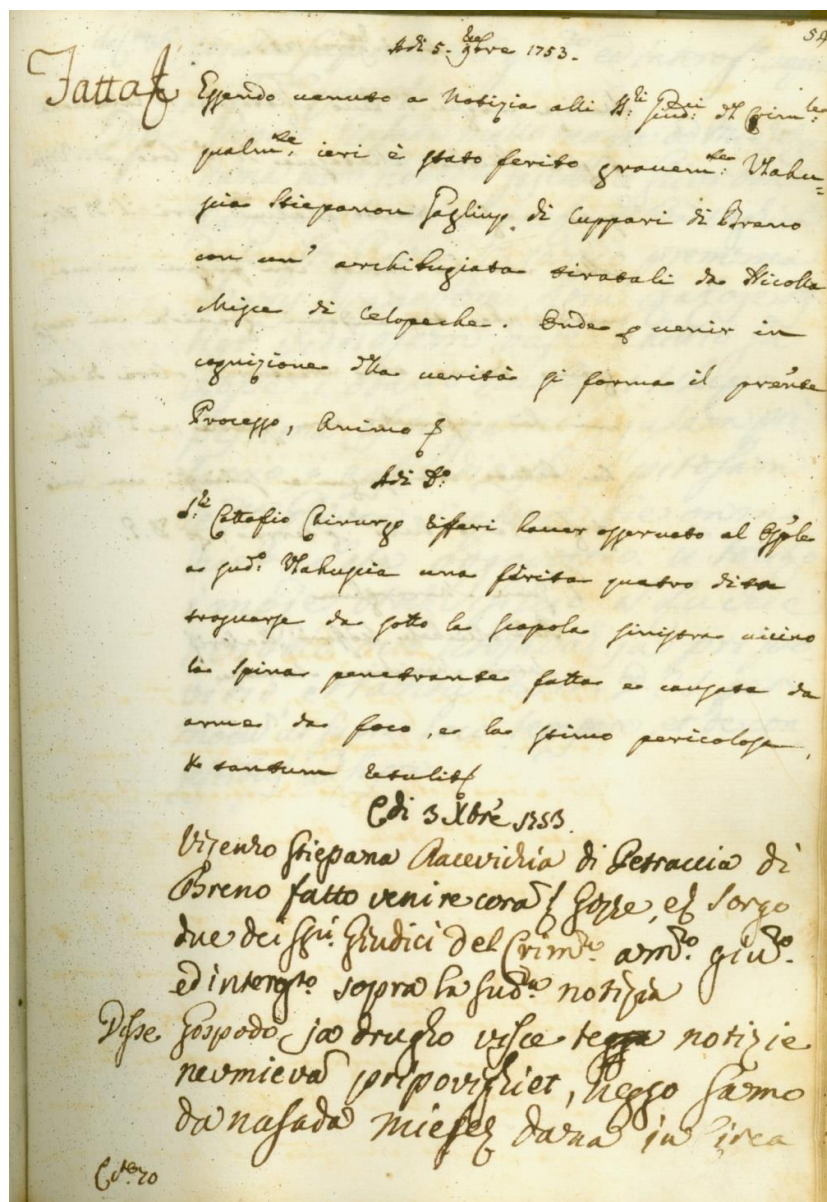 54
Adi 5. 9bre 1753.
Fatta Essendo venuto a notizia alli SS:ri Giud:ci del Crim:le
qualm:te ieri è stato ferito gravem:te Vlahu=
scia Stiepanou di Cuppari di Breno
con un' archibugiata tiratali da Nicolla
Misce di Celopeche. Onde p venir in
cognizione della verità si forma il prente
Processo, Animo
Adi D:o
S:r Cattafio Chirurgo riferi haver osservato al Osple
a sud:o Vlahuscia una ferita quatro dita
trasverse da sotto la scapola sinistra vicino
la spina penetrante fatta e causata da
arme da foco, e la stimo pericolosa,
et tantum retulit
Adi 3 Xbre 1753
Vizenzo Stiepana Racevichia di Petraccia di
Breno fatto venire corã SS Gozze, e Sorgo
due dei SS:ri Giudici del Crim:le am:o giu:o
ed interg:to sopra la sud:a notizia
Disse Gospodo ja drugho visce notizie
neumieva pripovighiet, neggo samo
da nasada miesez dana iu